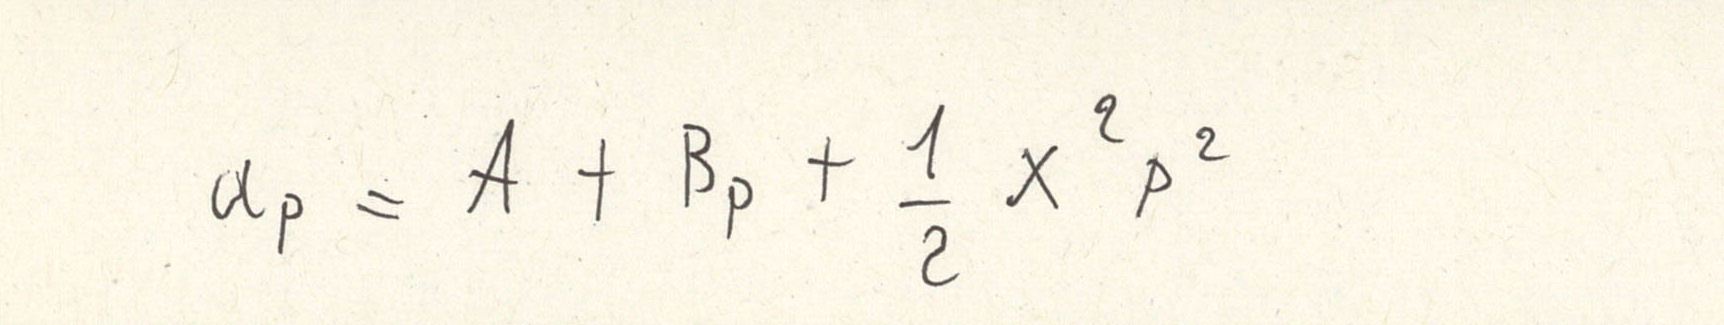 αₚ = A + Bₚ + 1/2 x² p²